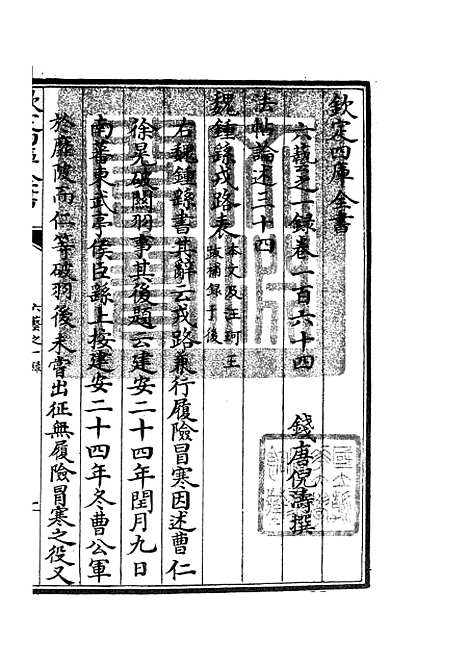 欽定四庫全書
六藝之一録卷一百六十四
錢唐倪濤撰
法帖論述三十四
魏鍾繇戎路表本文及汪珂王
跋補録于後
右魏鍾繇書其辭云戎路兼行履險冒寒因述曹仁
徐晃破關羽事其後題云建安二十四年閏月九日
南蕃東武亭侯臣繇上按建安二十四年冬曹公軍
於摩陂而仁等破羽後未嘗出征無履險冒寒之役又
欽定四庫全書
六藝之一録
一